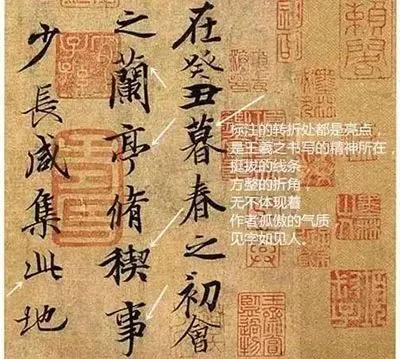 在癸丑暮春之初會
之蘭亭脩稧事
少長咸集此地
标注的转折处都是亮点，
是王羲之书写的精神所在，
挺拔的线条
方整的折角，
无不体现着
作者孤傲的气质
见字如见人。